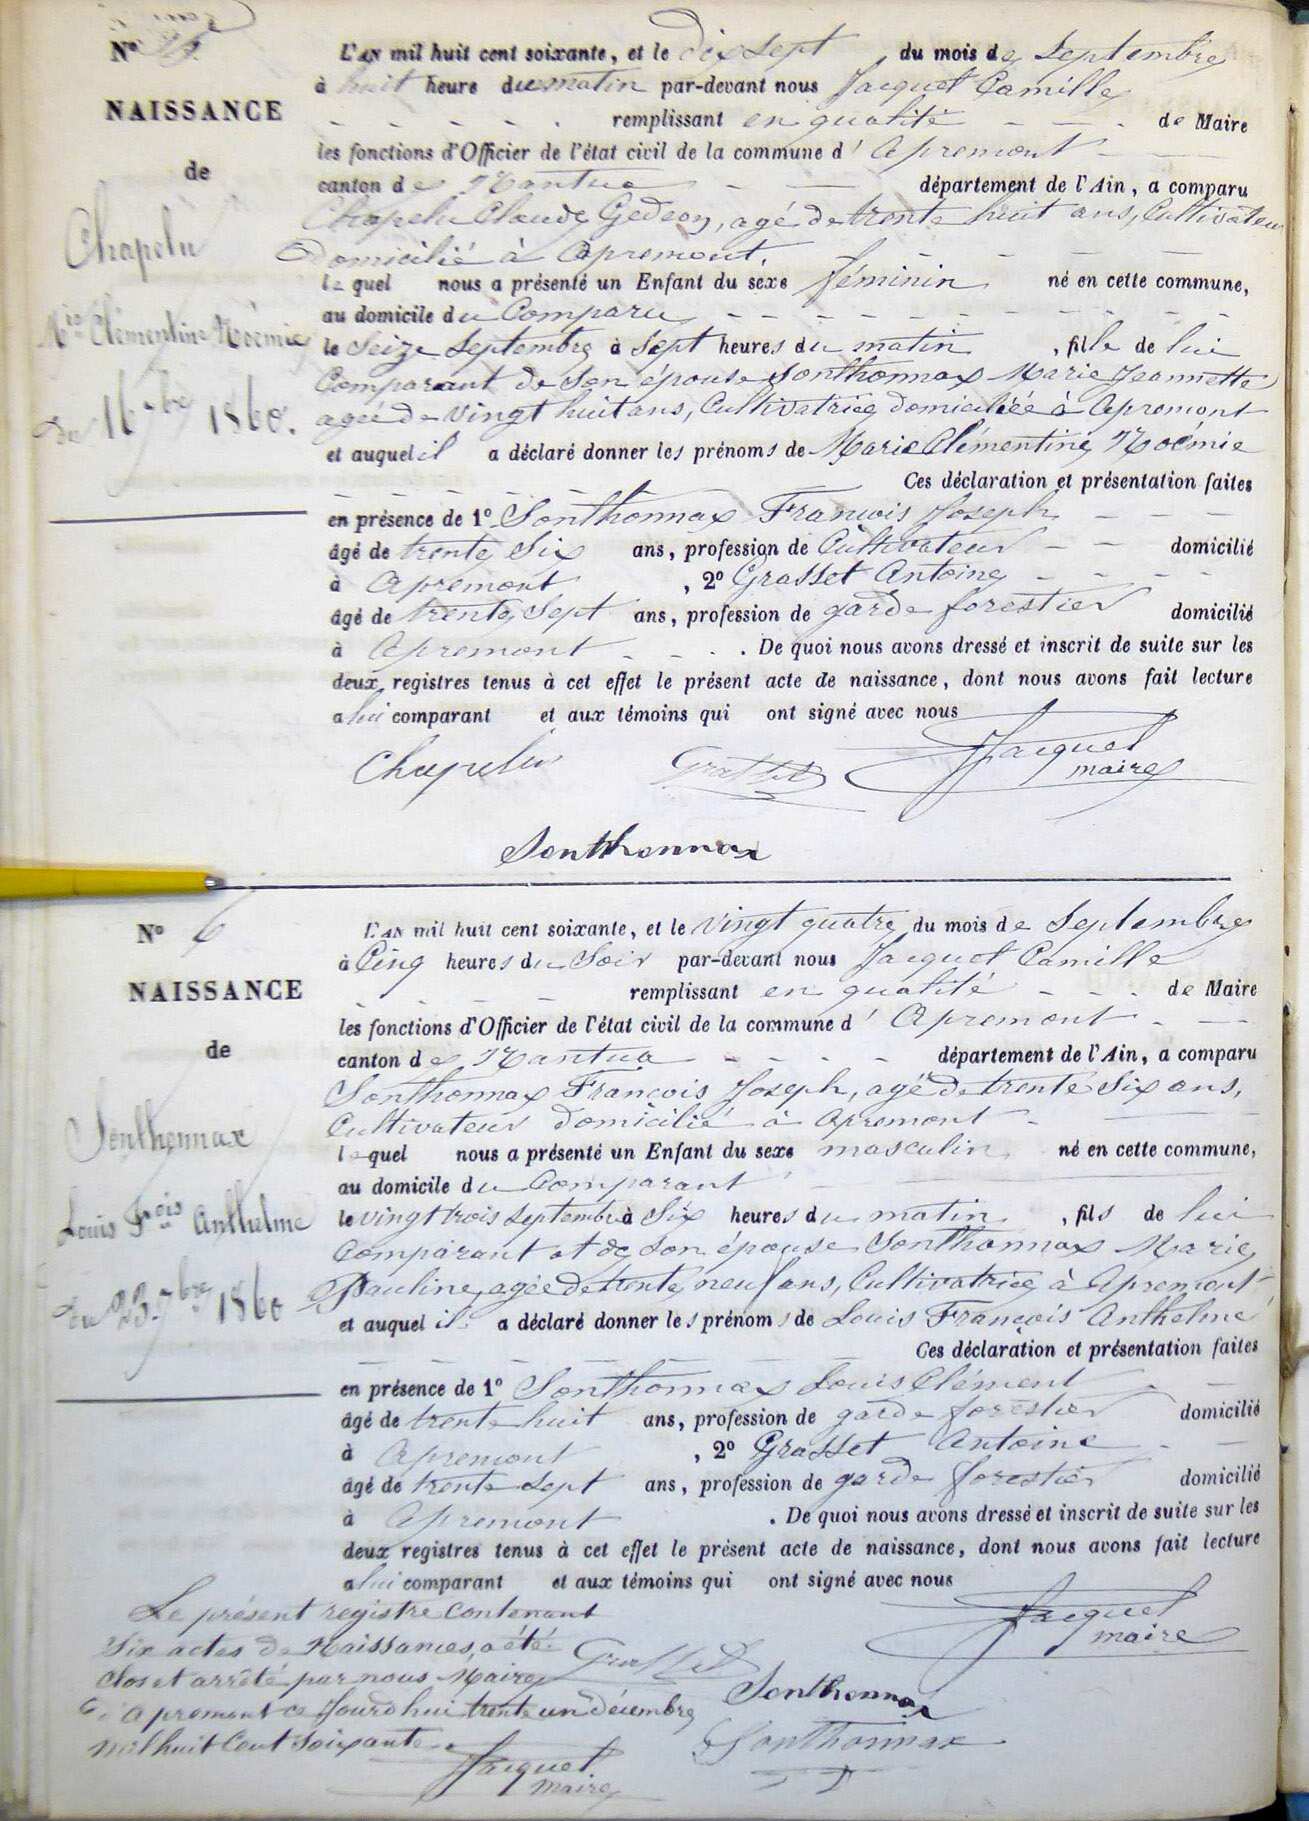 N° 5
NAISSANCE
de
Chapelu
Mie Clémentine Noémie
du 16 7bre 1860.
L'AN mil huit cent soixante, et le dix sept du mois de Septembre
à huit heure du matin par-devant nous Jacquet Camille
remplissant en qualité de Maire
les fonctions d'Officier de l'état civil de la commune d' Apremont
canton de Nantua département de l'Ain, a comparu
Chapelu Claude Gedeon, agé de trente huit ans, Cultivateur
domicilié à Apremont.
lequel nous a présenté un Enfant du sexe féminin né en cette commune,
au domicile du Comparu
le Seize Septembre à Sept heures du matin, fille de lui
Comparant de son épouse Sonthonnax Marie Jeannette
agée de vingt huit ans, Cultivatrice domiciliée à Apremont
et auquel il a déclaré donner les prénoms de Marie Clémentine Noémie
Ces déclaration et présentation faites
en présence de 1° Sonthonnax François Joseph
âgé de trente Six ans, profession de Cultivateur domicilié
à Apremont, 2° Grasset Antoine
âgé de trente Sept ans, profession de garde forestier domicilié
à Apremont. De quoi nous avons dressé et inscrit de suite sur les
deux registres tenus à cet effet le présent acte de naissance, dont nous avons fait lecture
a lui comparant et aux témoins qui ont signé avec nous
Chapelu Grasset Jacquet
maire
Sonthonnax
N° 6
NAISSANCE
de
Sonthonnax
Louis Frois Anthelme
du 23 7bre 1860
L'AN mil huit cent soixante, et le vingt quatre du mois de Septembre
à Cinq heures du Soir par-devant nous Jacquet Camille
remplissant en qualité de Maire
les fonctions d'Officier de l'état civil de la commune d' Apremont
canton de Nantua département de l'Ain, a comparu
Sonthonnax François Joseph, agé de trente Six ans,
Cultivateur domicilié à Apremont
lequel nous a présenté un Enfant du sexe masculin né en cette commune,
au domicile du Comparant
le vingt trois Septembre à Six heures du matin, fils de lui
Comparant et de Son épouse Sonthonnax Marie
Pauline, agée de trente neuf ans, Cultivatrice à Apremont
et auquel il a déclaré donner les prénoms de Louis François Anthelme
Ces déclaration et présentation faites
en présence de 1° Sonthonnax Louis Clément
âgé de trente huit ans, profession de garde forestier domicilié
à Apremont, 2° Grasset Antoine
âgé de trente Sept ans, profession de garde forestier domicilié
à Apremont. De quoi nous avons dressé et inscrit de suite sur les
deux registres tenus à cet effet le présent acte de naissance, dont nous avons fait lecture
a lui comparant et aux témoins qui ont signé avec nous
Jacquet
maire
Grasset
Sonthonnax
Sonthonnax
Le présent registre Contenant
Six actes de Naissances, a été
Clos et arrêté par nous Maire
à Apremont ce Jourd'hui trente un décembre
mil huit Cent Soixante.
Jacquet
maire